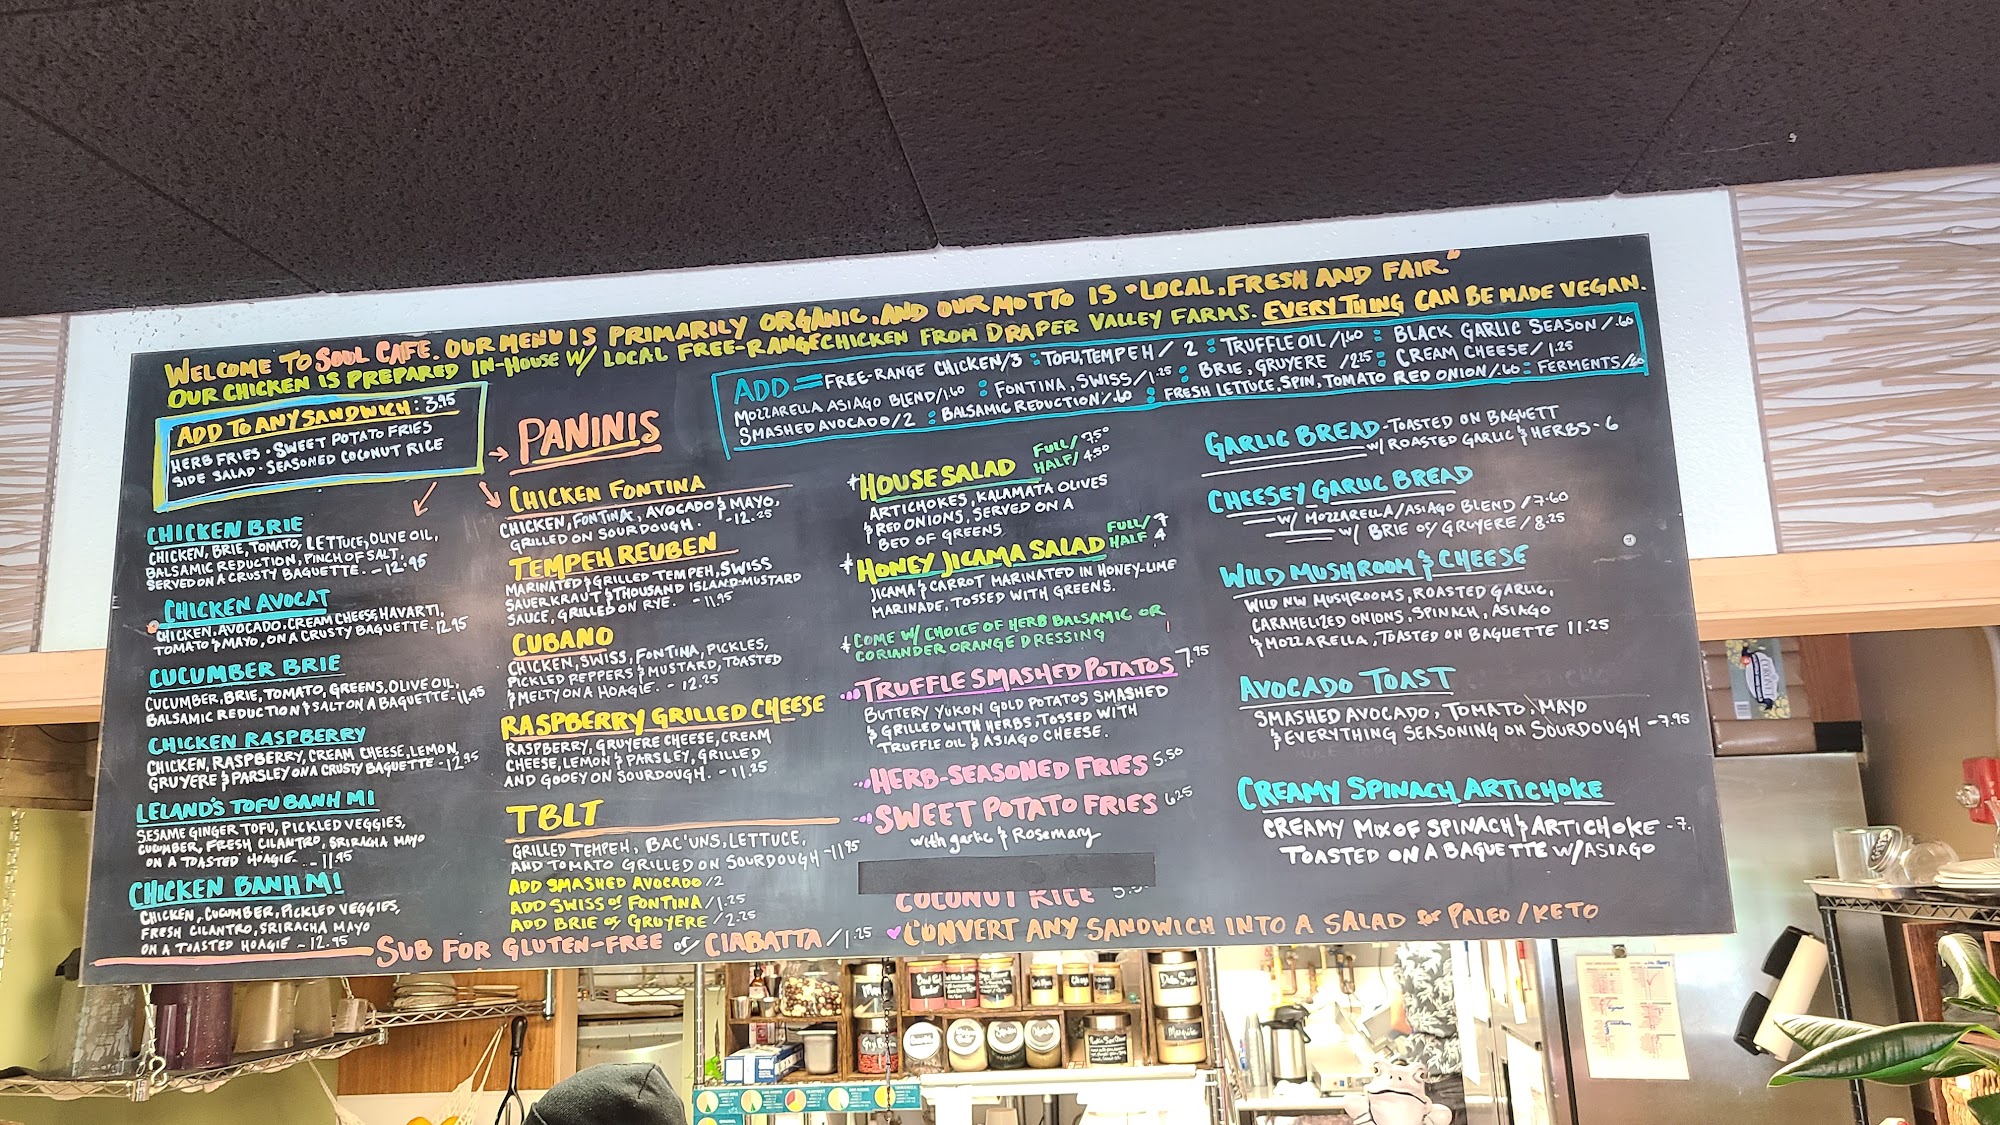 WELCOME TO SOUL CAFE. OUR MENU IS PRIMARILY ORGANIC, AND OUR MOTTO IS "LOCAL, FRESH AND FAIR."
OUR CHICKEN IS PREPARED IN-HOUSE W/ LOCAL FREE-RANGE CHICKEN FROM DRAPER VALLEY FARMS. EVERYTHING CAN BE MADE VEGAN.
ADD TO ANY SANDWICH: 3.95
HERB FRIES · SWEET POTATO FRIES
SIDE SALAD · SEASONED COCONUT RICE
ADD = FREE-RANGE CHICKEN/3 : TOFU, TEMPEH / 2 : TRUFFLE OIL /1.60 : BLACK GARLIC SEASON/.60
MOZZARELLA ASIAGO BLEND/1.60 : FONTINA, SWISS/1.25 : BRIE, GRUYERE /2.25 : CREAM CHEESE/1.25
SMASHED AVOCADO/2 : BALSAMIC REDUCTION/.60 : FRESH LETTUCE, SPIN, TOMATO RED ONION/.60 : FERMENTS/.60
CHICKEN BRIE
CHICKEN, BRIE, TOMATO, LETTUCE, OLIVE OIL,
BALSAMIC REDUCTION, PINCH OF SALT,
SERVED ON A CRUSTY BAGUETTE. - 12.95
CHICKEN AVOCAT
CHICKEN, AVOCADO, CREAM CHEESE, HAVARTI,
TOMATO & MAYO, ON A CRUSTY BAGUETTE. 12.95
CUCUMBER BRIE
CUCUMBER, BRIE, TOMATO, GREENS, OLIVE OIL,
BALSAMIC REDUCTION & SALT ON A BAGUETTE - 11.45
CHICKEN RASPBERRY
CHICKEN, RASPBERRY, CREAM CHEESE, LEMON,
GRUYERE & PARSLEY ON A CRUSTY BAGUETTE - 12.95
LELAND'S TOFU BANH MI
SESAME GINGER TOFU, PICKLED VEGGIES,
CUCUMBER, FRESH CILANTRO, SRIRACHA MAYO
ON A TOASTED HOAGIE. - 11.95
CHICKEN BANH MI
CHICKEN, CUCUMBER, PICKLED VEGGIES,
FRESH CILANTRO, SRIRACHA MAYO
ON A TOASTED HOAGIE - 12.95
PANINIS
CHICKEN FONTINA
CHICKEN, FONTINA, AVOCADO & MAYO,
GRILLED ON SOURDOUGH. - 12.25
TEMPEH REUBEN
MARINATED & GRILLED TEMPEH, SWISS
SAUERKRAUT & THOUSAND ISLAND-MUSTARD
SAUCE, GRILLED ON RYE. - 11.95
CUBANO
CHICKEN, SWISS, FONTINA, PICKLES,
PICKLED PEPPERS & MUSTARD, TOASTED
& MELTY ON A HOAGIE. - 12.25
RASPBERRY GRILLED CHEESE
RASPBERRY, GRUYERE CHEESE, CREAM
CHEESE, LEMON & PARSLEY, GRILLED
AND GOOEY ON SOURDOUGH. - 11.25
TBLT
GRILLED TEMPEH, BAC'UNS, LETTUCE,
AND TOMATO GRILLED ON SOURDOUGH - 11.95
ADD SMASHED AVOCADO/2
ADD SWISS or FONTINA/1.25
ADD BRIE or GRUYERE /2.25
SUB FOR GLUTEN-FREE or CIABATTA /1.25
HOUSE SALAD FULL/ 7.50
HALF/ 4.50
ARTICHOKES, KALAMATA OLIVES
& RED ONIONS, SERVED ON A
BED OF GREENS
HONEY JICAMA SALAD FULL/ 7
HALF 4
JICAMA & CARROT MARINATED IN HONEY-LIME
MARINADE. TOSSED WITH GREENS.
COME W/ CHOICE OF HERB BALSAMIC OR
CORIANDER ORANGE DRESSING
TRUFFLE SMASHED POTATOS 7.95
BUTTERY YUKON GOLD POTATOS SMASHED
& GRILLED WITH HERBS, TOSSED WITH
TRUFFLE OIL & ASIAGO CHEESE.
HERB-SEASONED FRIES 5.50
SWEET POTATO FRIES 6.25
with garlic & Rosemary
COCONUT RICE
CONVERT ANY SANDWICH INTO A SALAD or PALEO/KETO
GARLIC BREAD - TOASTED ON BAGUETT
W/ ROASTED GARLIC & HERBS - 6
CHEESEY GARLIC BREAD
W/ MOZZARELLA/ASIAGO BLEND /7.60
W/ BRIE or GRUYERE / 8.25
WILD MUSHROOM & CHEESE
WILD NW MUSHROOMS, ROASTED GARLIC,
CARAMELIZED ONIONS, SPINACH, ASIAGO
& MOZZARELLA, TOASTED ON BAGUETTE 11.25
AVOCADO TOAST
SMASHED AVOCADO, TOMATO, MAYO
& EVERYTHING SEASONING ON SOURDOUGH - 7.95
CREAMY SPINACH ARTICHOKE
CREAMY MIX OF SPINACH & ARTICHOKE - 7.
TOASTED ON A BAGUETTE W/ ASIAGO